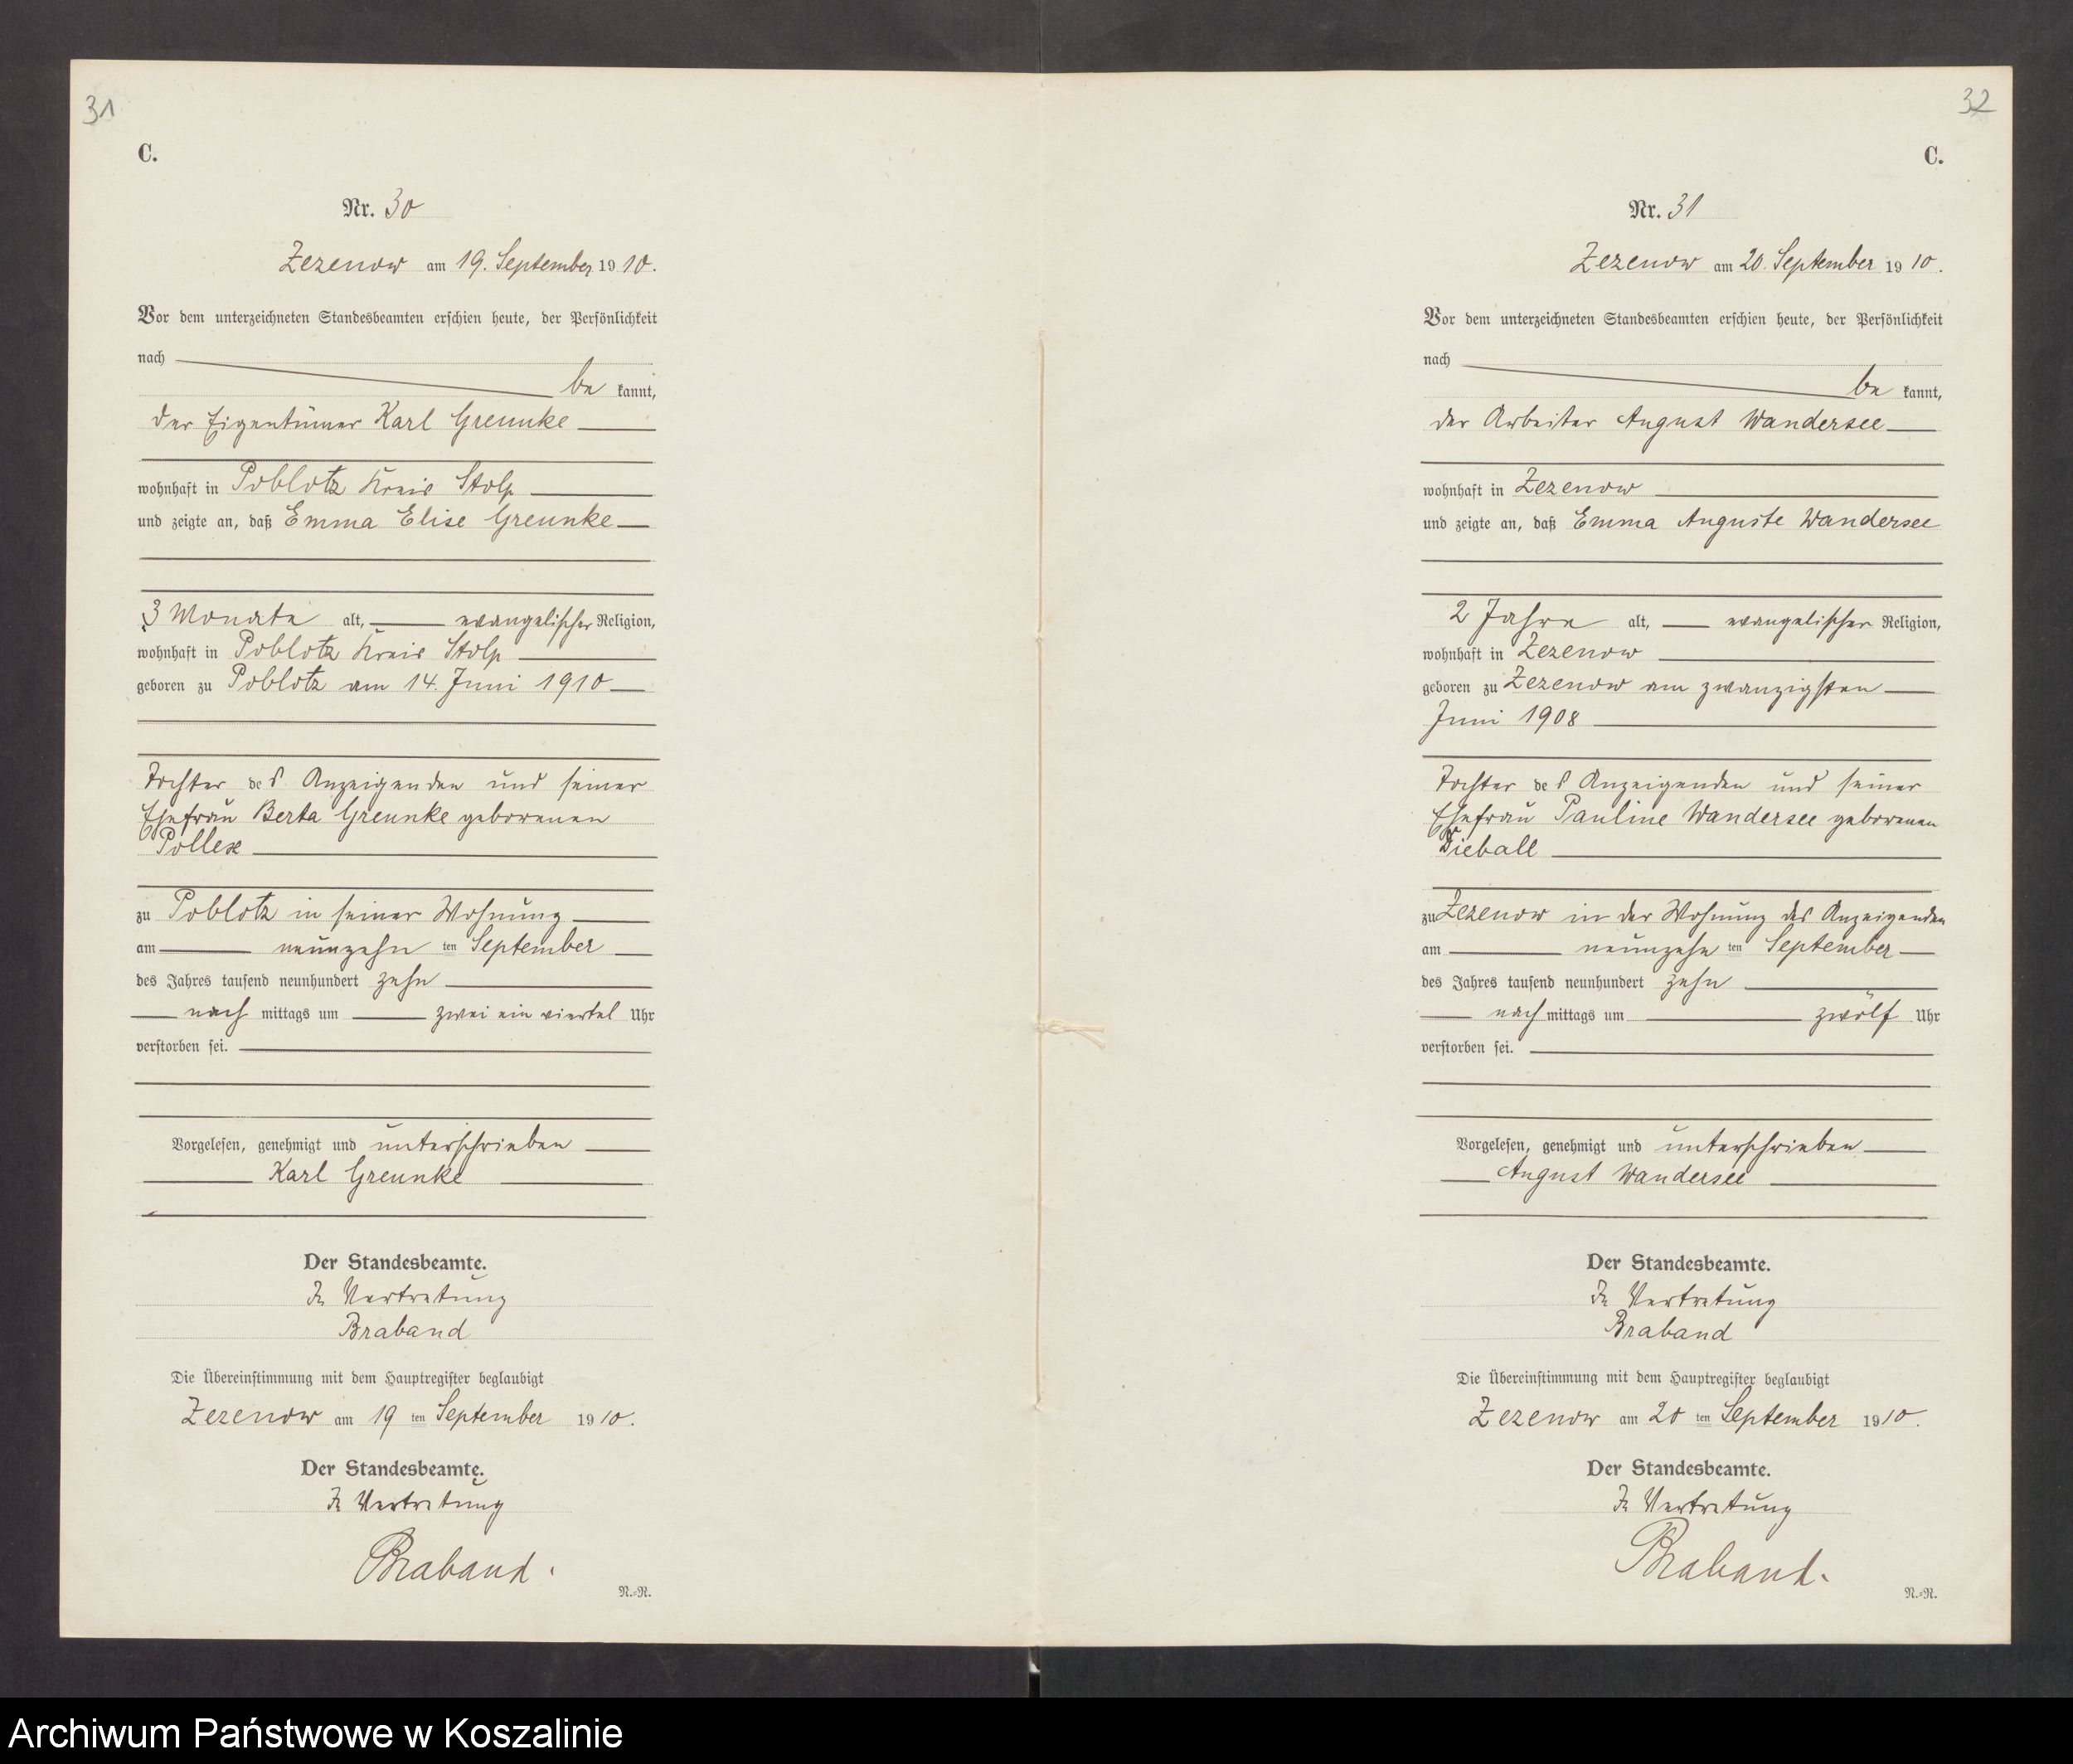 31
C.
Nr. 30
Zezenow am 19. September 1910.
Vor dem unterzeichneten Standesbeamten erschien heute, der Persönlichkeit
nach
be kannt,
der Eigentümer Karl Greunke
wohnhaft in Poblotz Kreis Stolp
und zeigte an, daß Emma Elise Greunke
3 Monate alt, evangelischer Religion,
wohnhaft in Poblotz Kreis Stolp
geboren zu Poblotz am 14. Juni 1910
Tochter des Anzeigenden und seiner
Ehefrau Berta Greunke geborenen
Pollex
zu Poblotz in seiner Wohnung
am neunzehn ten September
des Jahres tausend neunhundert zehn
nach mittags um zwei ein viertel Uhr
verstorben sei.
Vorgelesen, genehmigt und unterschrieben
Karl Greunke
Der Standesbeamte.
In Vertretung
Braband
Die Übereinstimmung mit dem Hauptregister beglaubigt
Zezenow am 19 ten September 1910.
Der Standesbeamte.
In Vertretung
Braband.
N.=N.
32
C.
Nr. 31
Zezenow am 20. September 1910.
Vor dem unterzeichneten Standesbeamten erschien heute, der Persönlichkeit
nach
be kannt,
der Arbeiter August Wandersee
wohnhaft in Zezenow
und zeigte an, daß Emma Auguste Wandersee
2 Jahre alt, evangelischer Religion,
wohnhaft in Zezenow
geboren zu Zezenow am zwanzigsten
Juni 1908
Tochter des Anzeigenden und seiner
Ehefrau Pauline Wandersee geborenen
Dieball
zu Zezenow in der Wohnung des Anzeigenden
am neunzehn ten September
des Jahres tausend neunhundert zehn
nach mittags um zwölf Uhr
verstorben sei.
Vorgelesen, genehmigt und unterschrieben
August Wandersee
Der Standesbeamte.
In Vertretung
Braband
Die Übereinstimmung mit dem Hauptregister beglaubigt
Zezenow am 20 ten September 1910.
Der Standesbeamte.
In Vertretung
Braband.
N.=N.
Archiwum Państwowe w Koszalinie